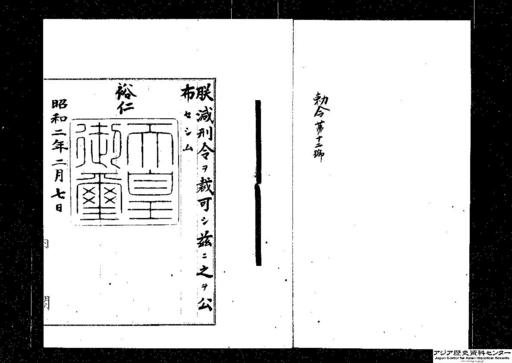 勅令第十二号
朕減刑令ヲ裁可シ茲ニ之ヲ公
布セシム
裕仁
天皇
御璽
昭和二年二月七日
アジア歴史資料センター
Japan Center for Asian Historical Records